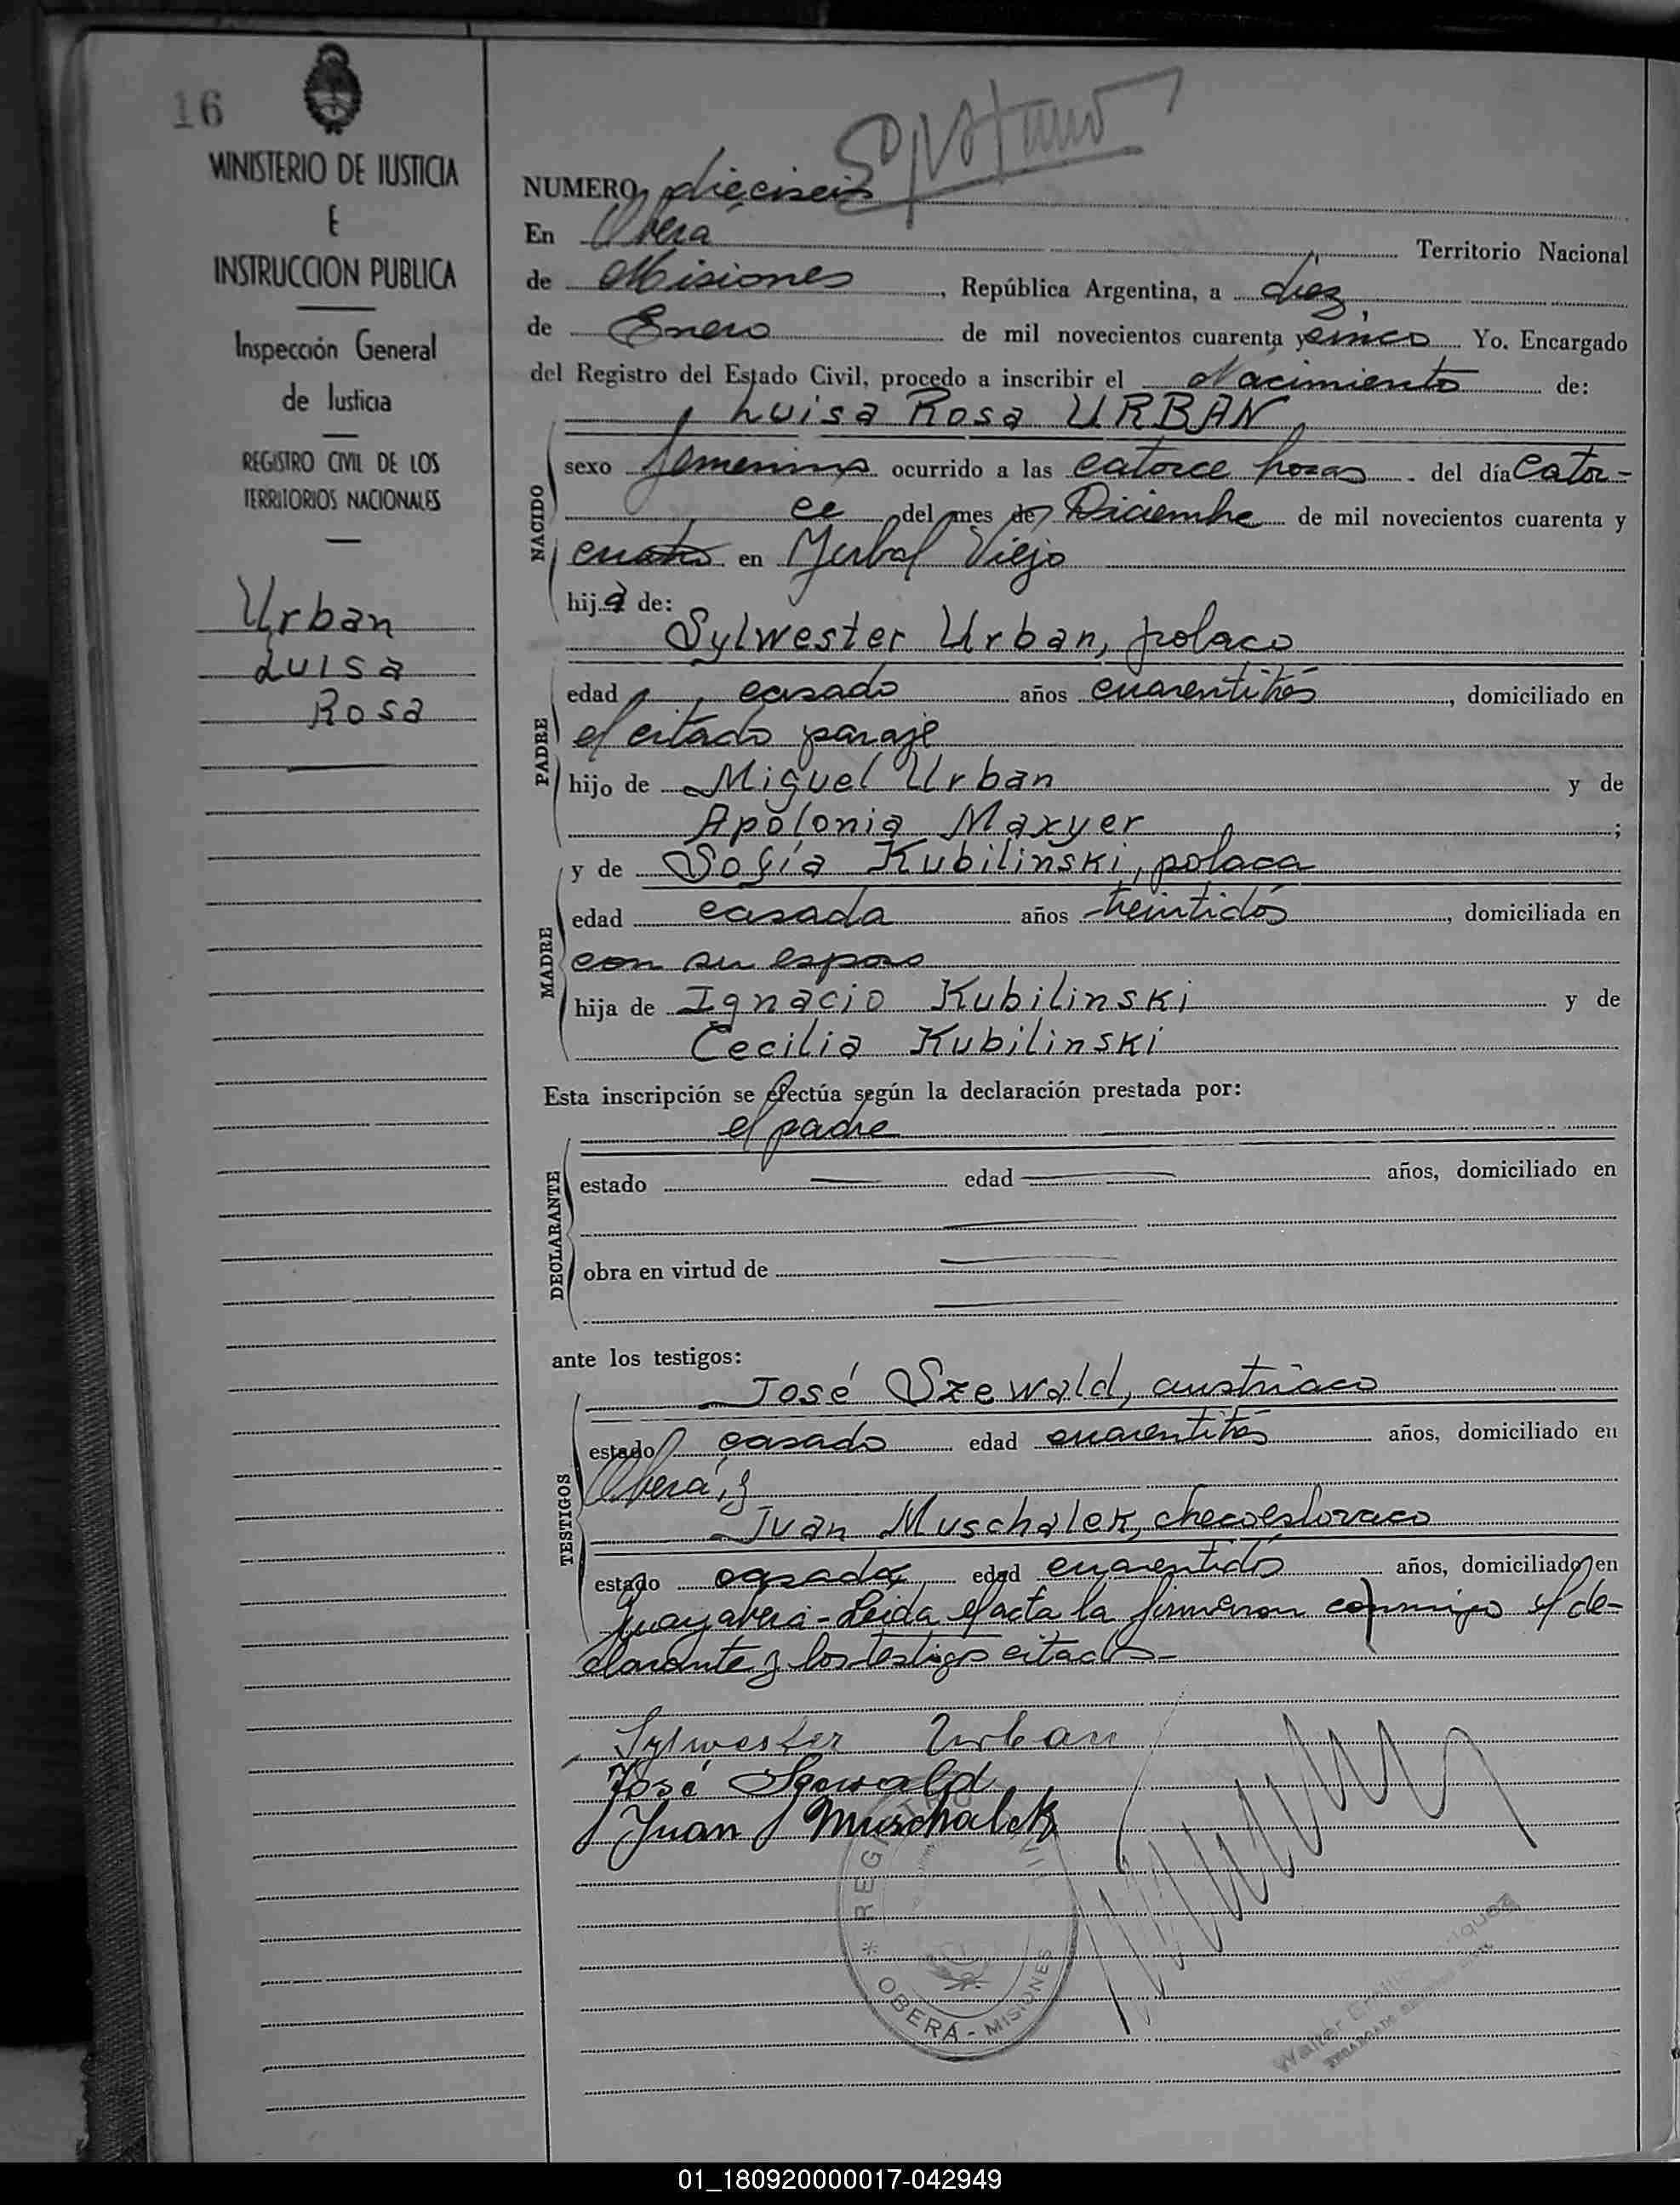 16
MINISTERIO DE JUSTICIA
E
INSTRUCCION PUBLICA
Inspección General
de Justicia
REGISTRO CIVIL DE LOS
TERRITORIOS NACIONALES
Urban
Luisa
Rosa
NUMERO dieciseis
En Oberá Territorio Nacional
de Misiones, República Argentina, a diez
de Enero de mil novecientos cuarenta y cinco Yo. Encargado
del Registro del Estado Civil, procedo a inscribir el Nacimiento de:
Luisa Rosa URBAN
NACIDO
sexo femenino ocurrido a las catorce horas del día Cator-
ce del mes de Diciembre de mil novecientos cuarenta y
cuatro en Yerbal Viejo
hija de:
Sylwester Urban, polaco
PADRE
edad casado años cuarentitrés, domiciliado en
el citado paraje
hijo de Miguel Urban y de
Apolonia Maxyer;
y de Sofía Kubilinski, polaca
MADRE
edad casada años treintidós, domiciliada en
con su esposo
hija de Ignacio Kubilinski y de
Cecilia Kubilinski
Esta inscripción se efectúa según la declaración prestada por:
el padre
DECLARANTE
estado edad años, domiciliado en
obra en virtud de
ante los testigos:
José Szewald, austriaco
TESTIGOS
estado casado edad cuarentitrés años, domiciliado en
Oberá, y
Juan Muschalek, checoeslovaco
estado casado edad cuarentidós años, domiciliado en
Guayabera - Leida el acta la firmaron conmigo el de-
clarante y los testigos citados -
Sylwester Urban
José
Juan Muschalek
REGISTRO
OBERÁ - MISIONES
Walter
ENCARGADO
01_180920000017-042949